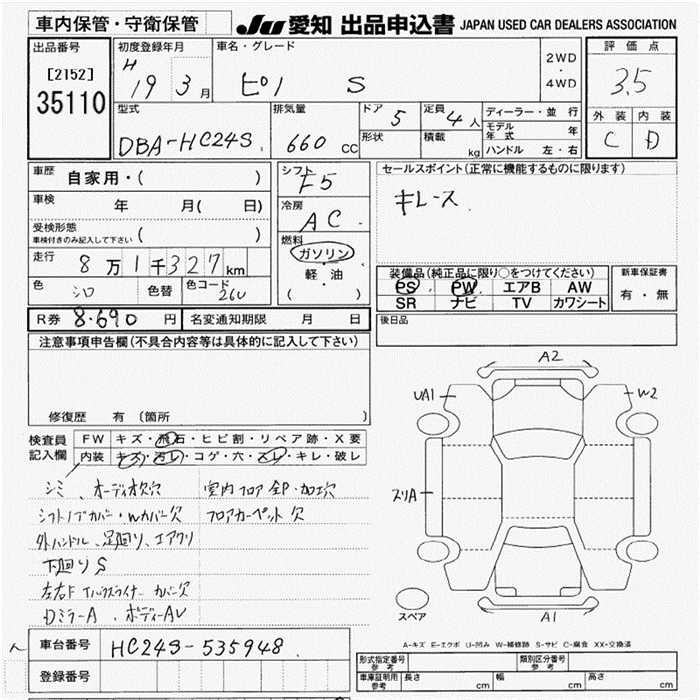 車内保管・守衛保管
JU 愛知 出品申込書 JAPAN USED CAR DEALERS ASSOCIATION
出品番号
[2152]
35110
初度登録年月
H 19 3 月
車名・グレード
ピノ S
2WD
・
4WD
評価点
3.5
外装 内装
C D
型式
DBA-HC24S
排気量
660 CC
ドア 5
形状
定員 4 人
積載 kg
ディーラー・並行
モデル年式 年
ハンドル 左・右
車歴 自家用・( )
車検 年 月( 日)
受検形態
車検付きのみ記入して下さい ( )
走行 8万1千327km
色 シロ 色替 色コード 26U
シフト F5
冷房 AC
燃料
ガソリン
・
軽・油
( )
セールスポイント(正常に機能するものに限ります)
キレース
装備品(純正品に限り○をつけてください)
PS PW エアB AW
SR ナビ TV カワシート
新車保証書
有・無
R券 8.690 円 名変通知期限 月 日
後日品
注意事項申告欄(不具合内容等は具体的に記入して下さい)
修復歴 有 〔箇所 〕
検査員記入欄
FW キズ・飛石・ヒビ割・リペア跡・X要
内装 キズ・汚レ・コゲ・穴・スレ・キレ・破レ
シミ、オーディオ欠穴 室内フロア全P・加エ穴
シフトノブカバー・Wカバー欠 フロアカーペット欠
外ハンドル、足廻り、エアクリ
下廻りS
左右F カバー欠
Dミラー A、ボディー AU
A2
UA1
W2
スリA
A1
スペア
A-キズ E-エクボ U-凹み W-補修跡 S-サビ C-腐食 XX-交換済
車台番号 HC24S-535948
登録番号
形式指定番号 参考
類別区分番号 参考
車庫証明用 参考 長さ cm 幅 cm 高さ cm